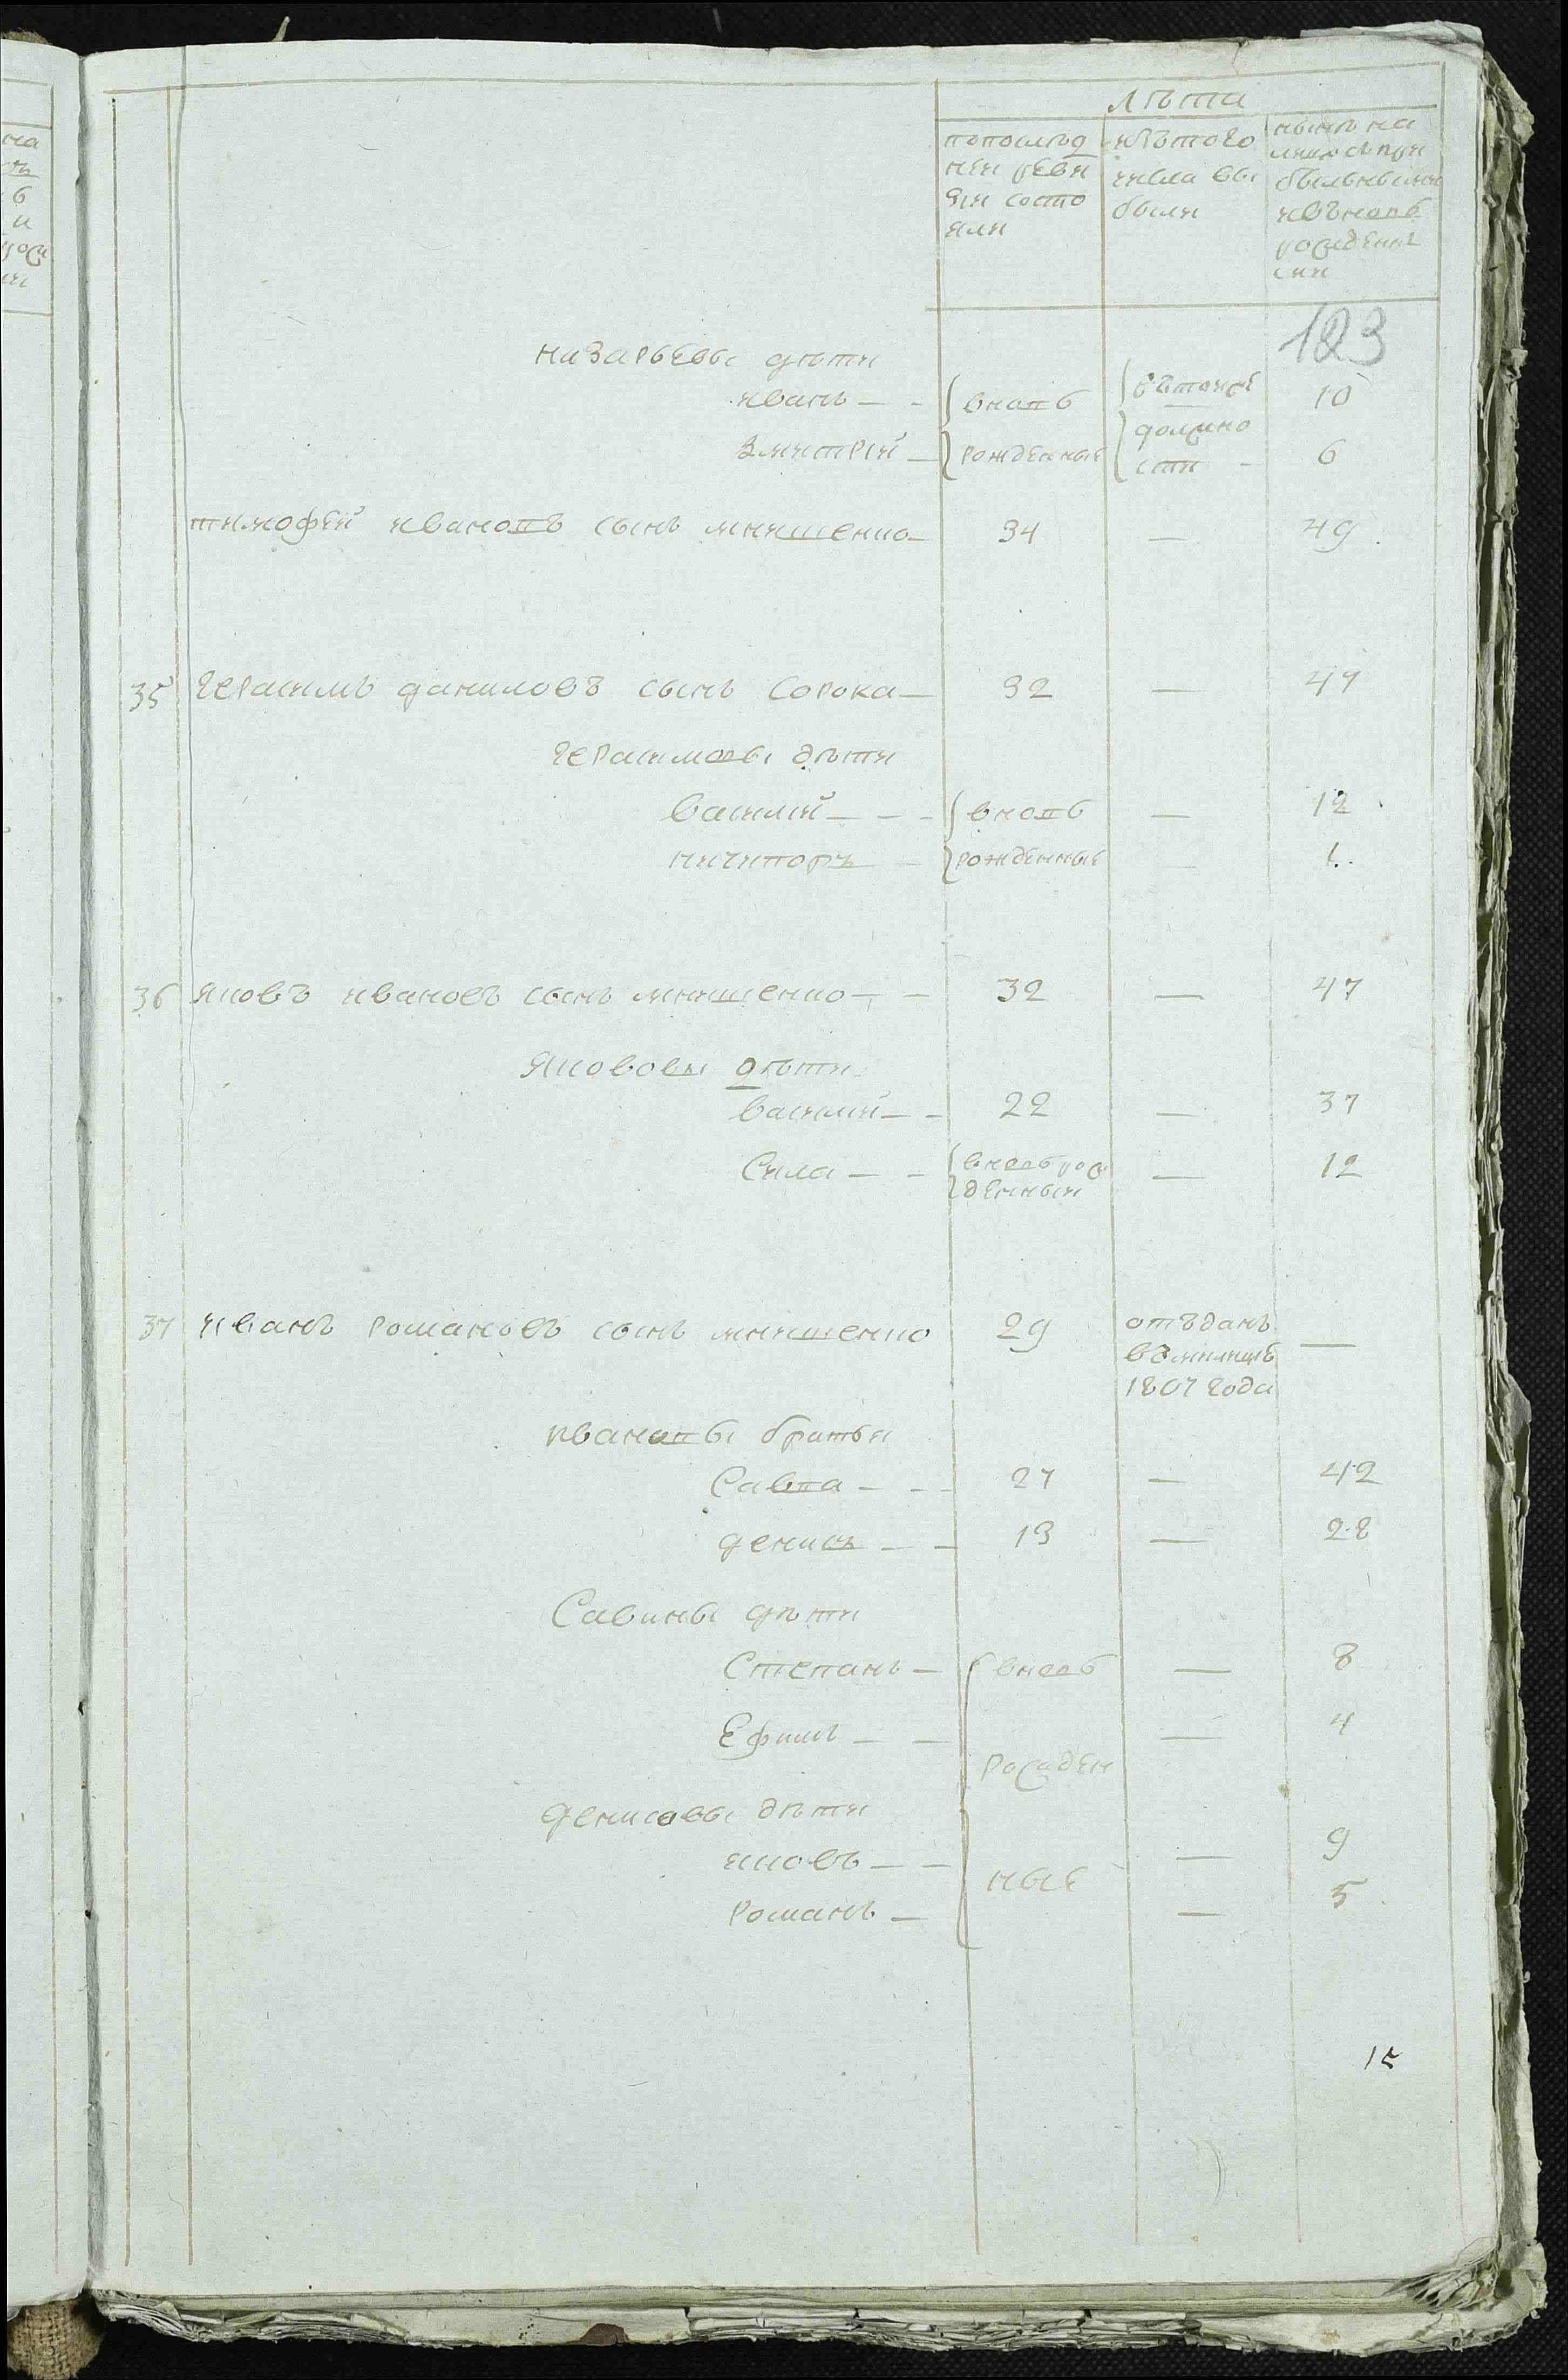 лѣта
попослѣд
ней реви
зіи состо
яли
изътого
числа вы
были
нынѣ на
лицо съ при
былымыми
извновь
рожденны
ми
123
назарьевы дѣти
иванъ — — вновь въточне 10
дмитрій — рожденные должно
сти — 6
тимофей ивановъ сынъ мнишенко — 34 — 49
35 герасимъ даниловъ сынъ сорока — 32 — 47
герасимовы дѣти
василій — — — вновь — 12
ничипоръ — рожденные — 1
36 яковъ ивановъ сынъ мнишенко — — 32 — 47
якововы дѣти
василій — — 22 — 37
Сила — — вновь рож — 12
денный
37 иванъ романовъ сынъ мнишенко 29 отъданъ —
въмилицію
1807 года
ивановы братья
Савва — — — 27 — 42
денисъ — — 13 — 28
Савины дѣти
Степанъ — вновь — 8
Ефимъ — — — 4
рожден
денисовы дѣти
яковъ — — — 9
ные
романъ — — 5
15
на
ь
и
рож